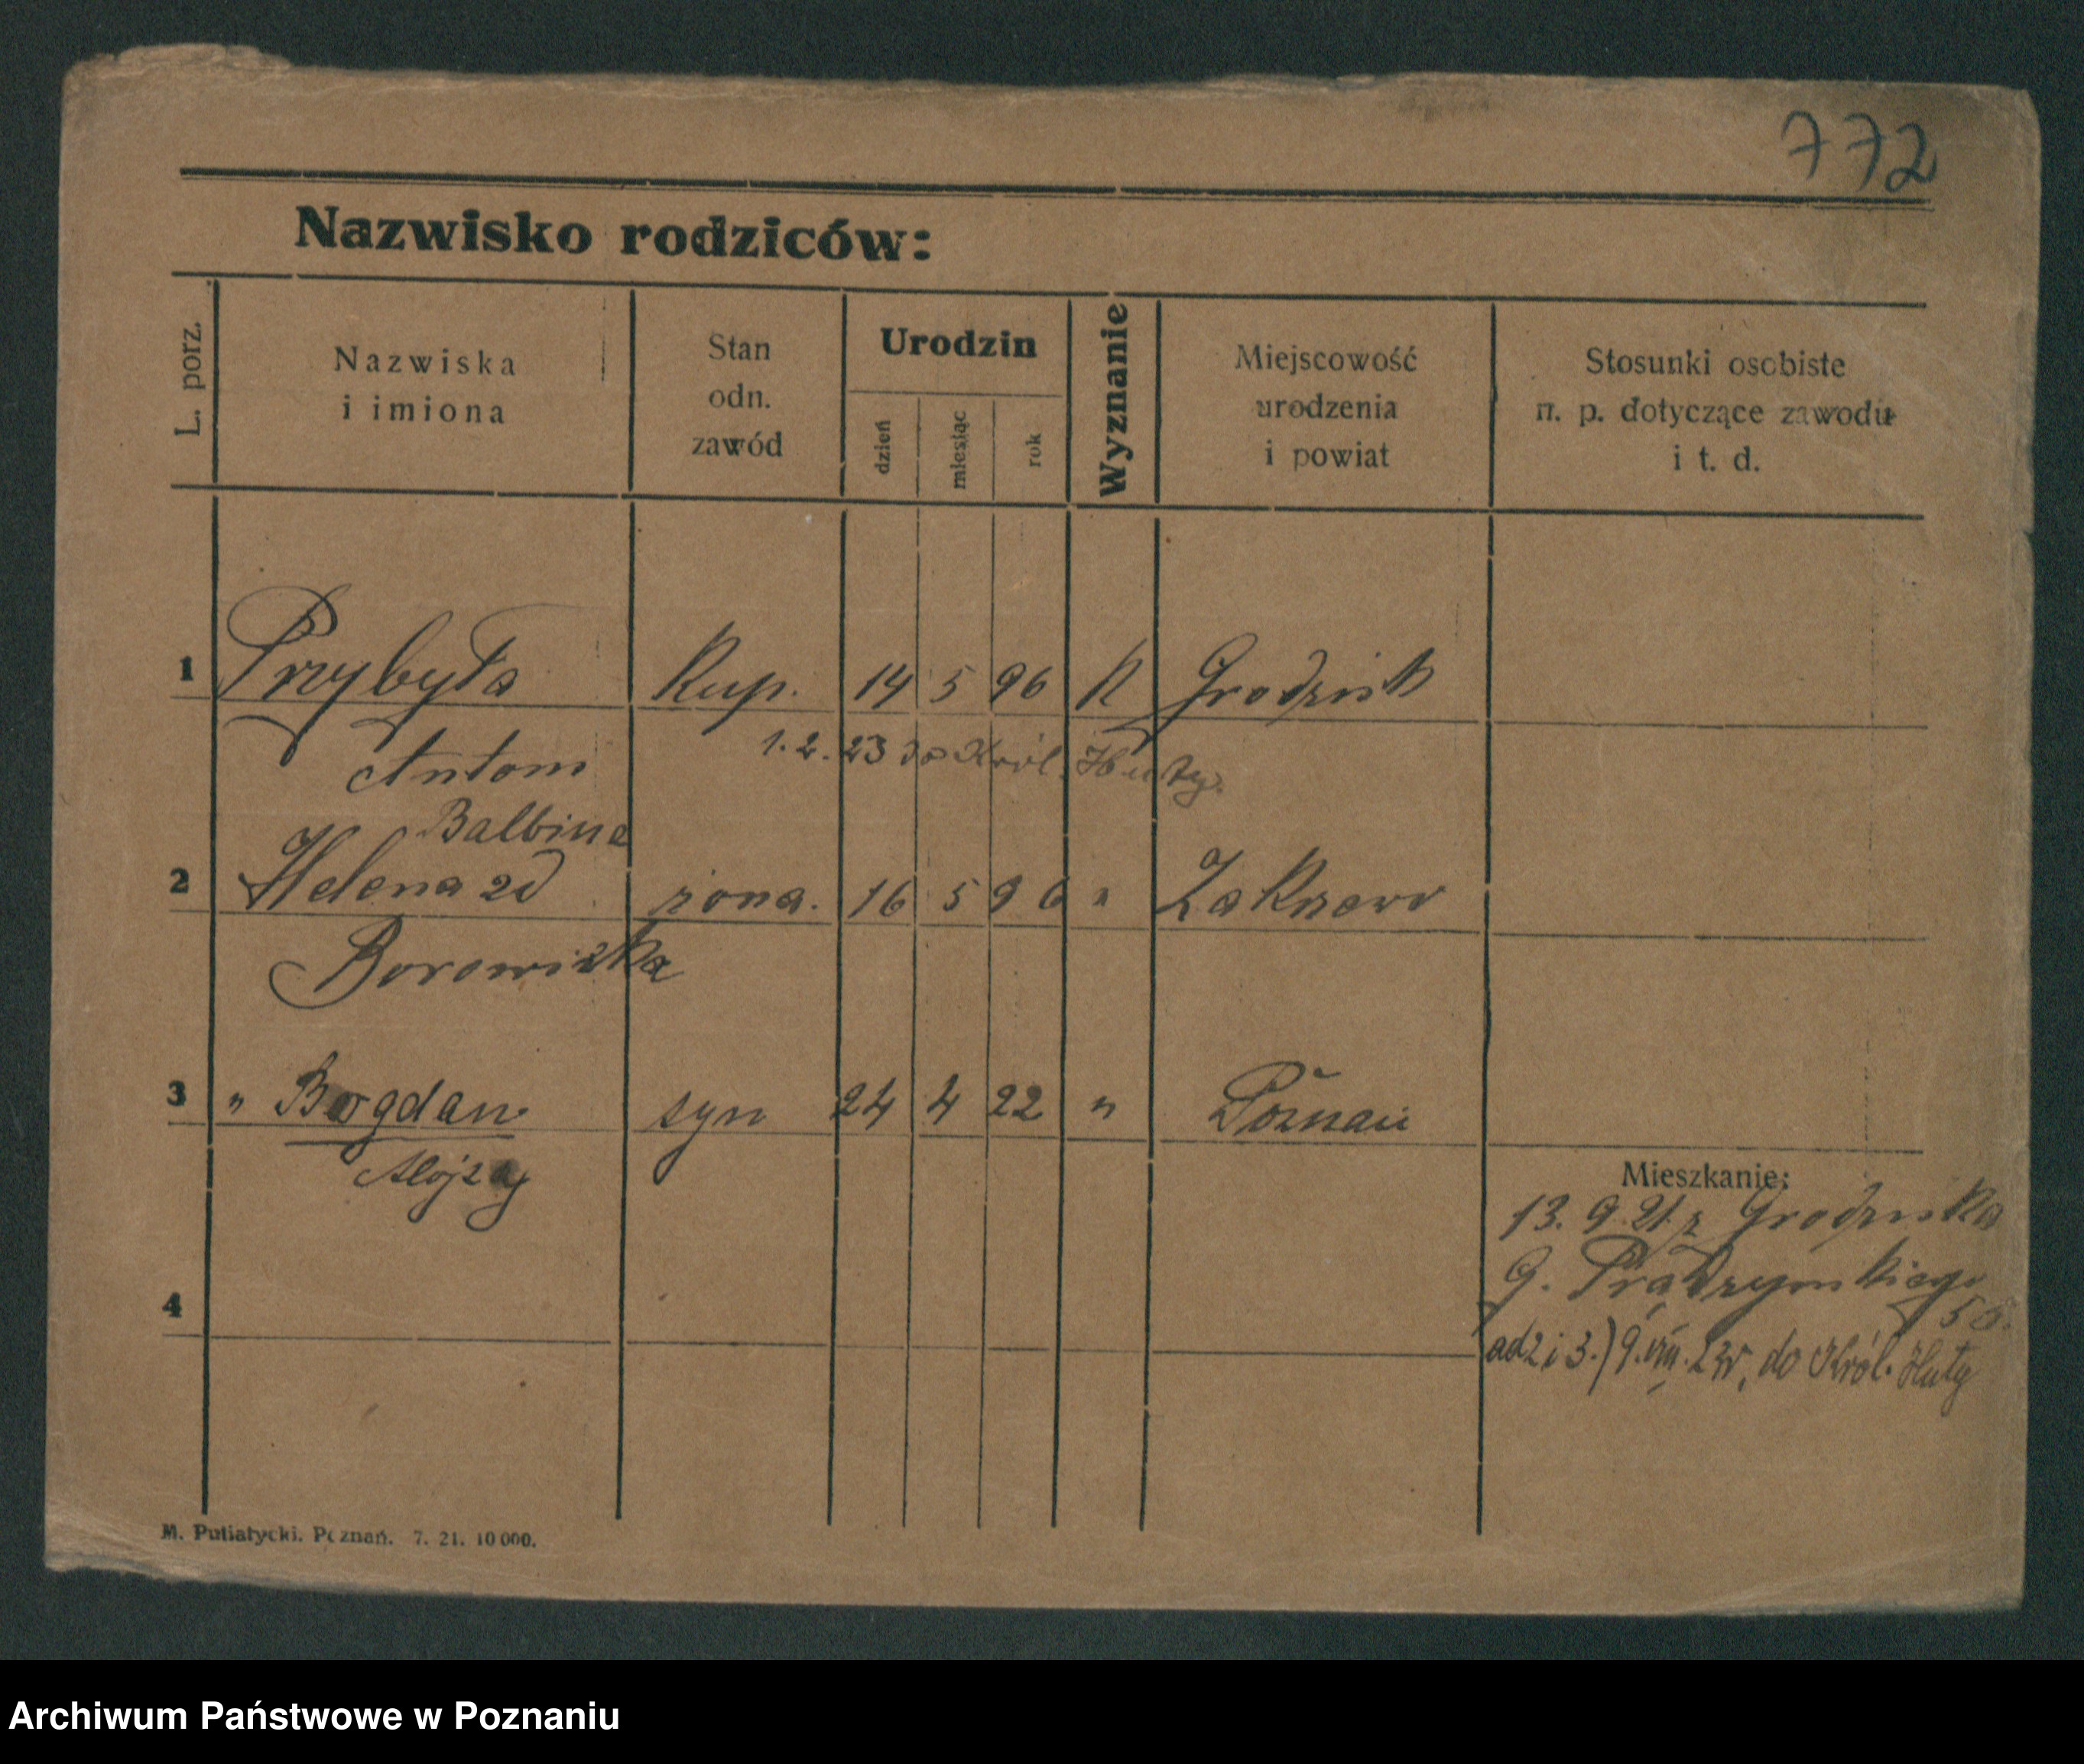 772
Nazwisko rodziców:
L. porz.
Nazwiska
i imiona
Stan
odn.
zawód
Urodzin
dzień
miesiąc
rok
Wyznanie
Miejscowość
urodzenia
i powiat
Stosunki osobiste
n. p. dotyczące zawodu
i t. d.
1 Przybyła Kup. 14 5 96 K Grodzisk
Antoni 1. 2. 23 do Król. Huty.
Balbina
2 Helena zd żona. 16 5 96 " Zakrzewo
Borowizka
3 " Bogdan syn 24 4 22 " Poznań
Alojzy
Mieszkanie:
13. 9. 21. z Grodziska
G. Prądzyńskiego
4
ad 2 i 3.) 9. VIII. do Król. Huty
M. Putiatycki. Poznań. 7. 21. 10 000.
Archiwum Państwowe w Poznaniu